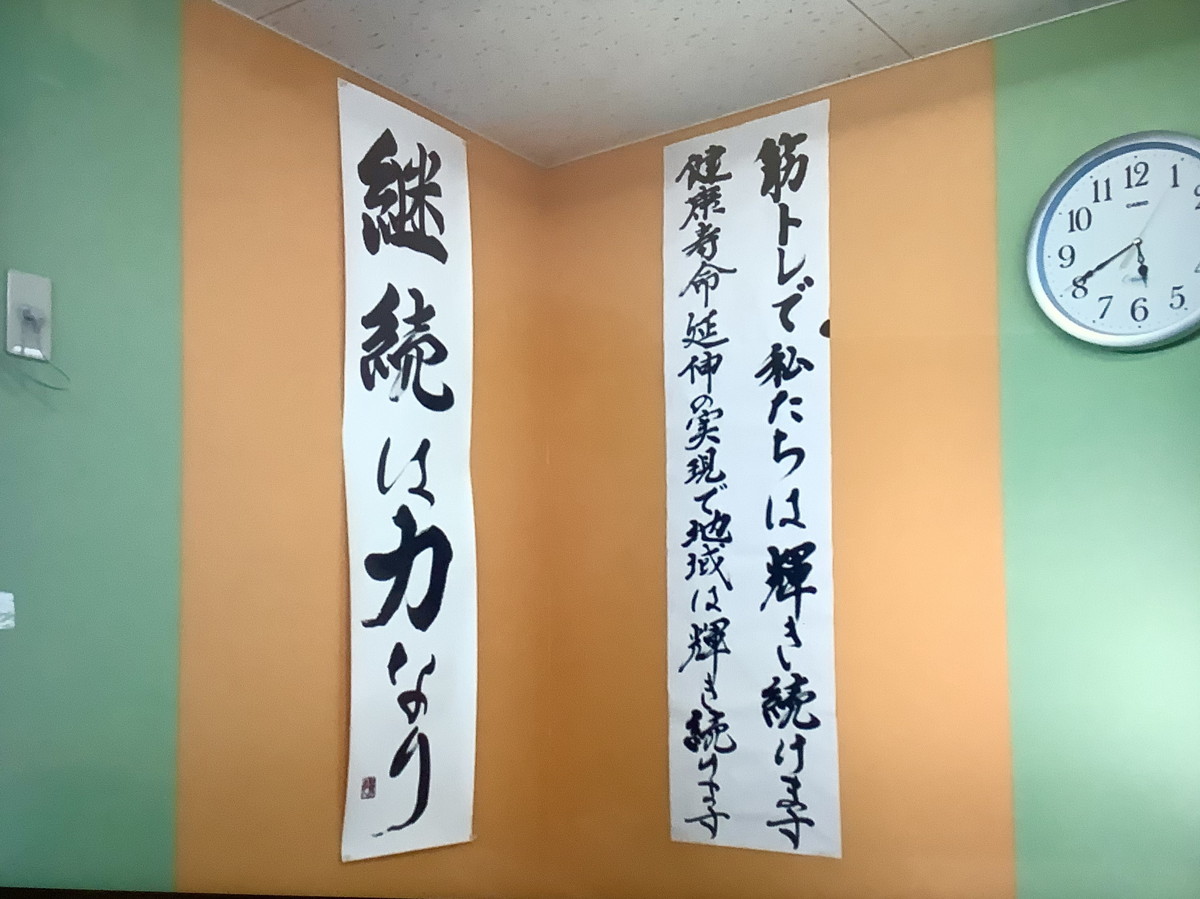 継続は力なり
筋トレで私たちは輝き続けます
健康寿命延伸の実現で地域は輝き続けます
11 12 1
10
9
8
7 6 5
CASIO